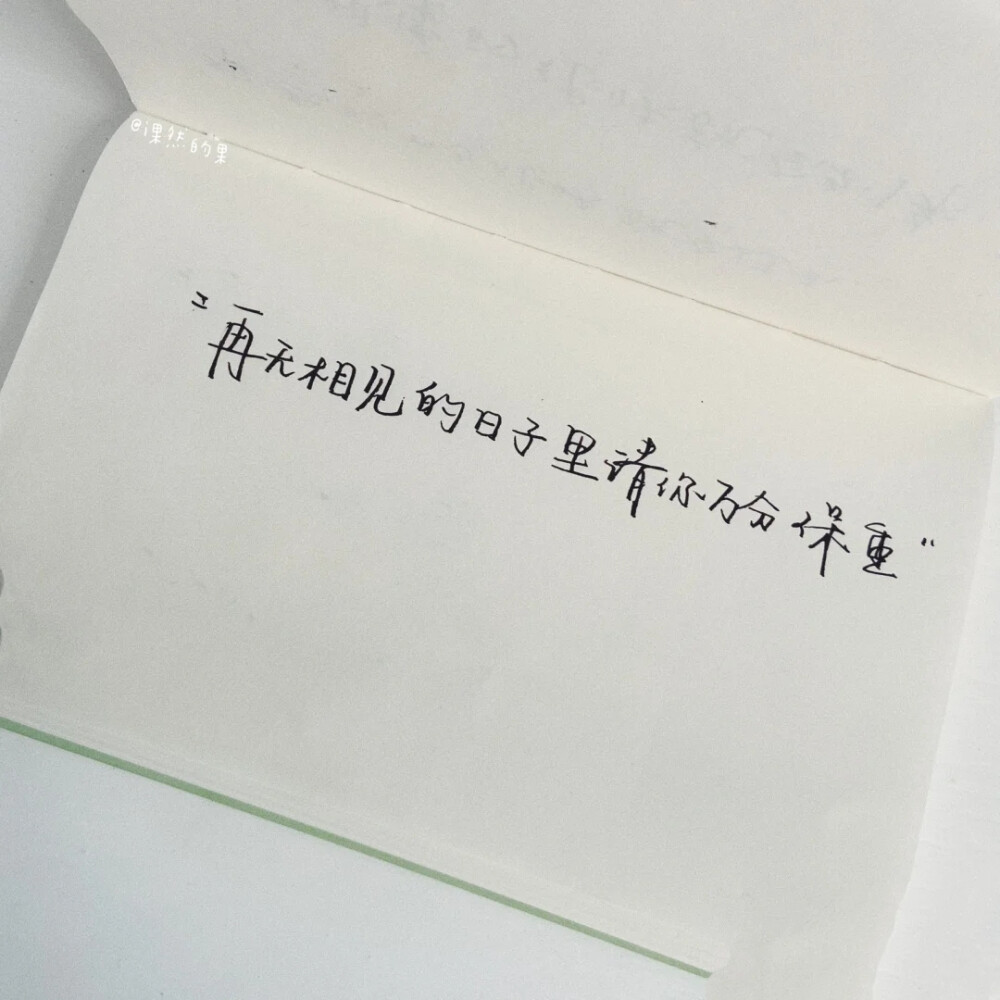 @课然的果
“再无相见的日子里请你万分保重”